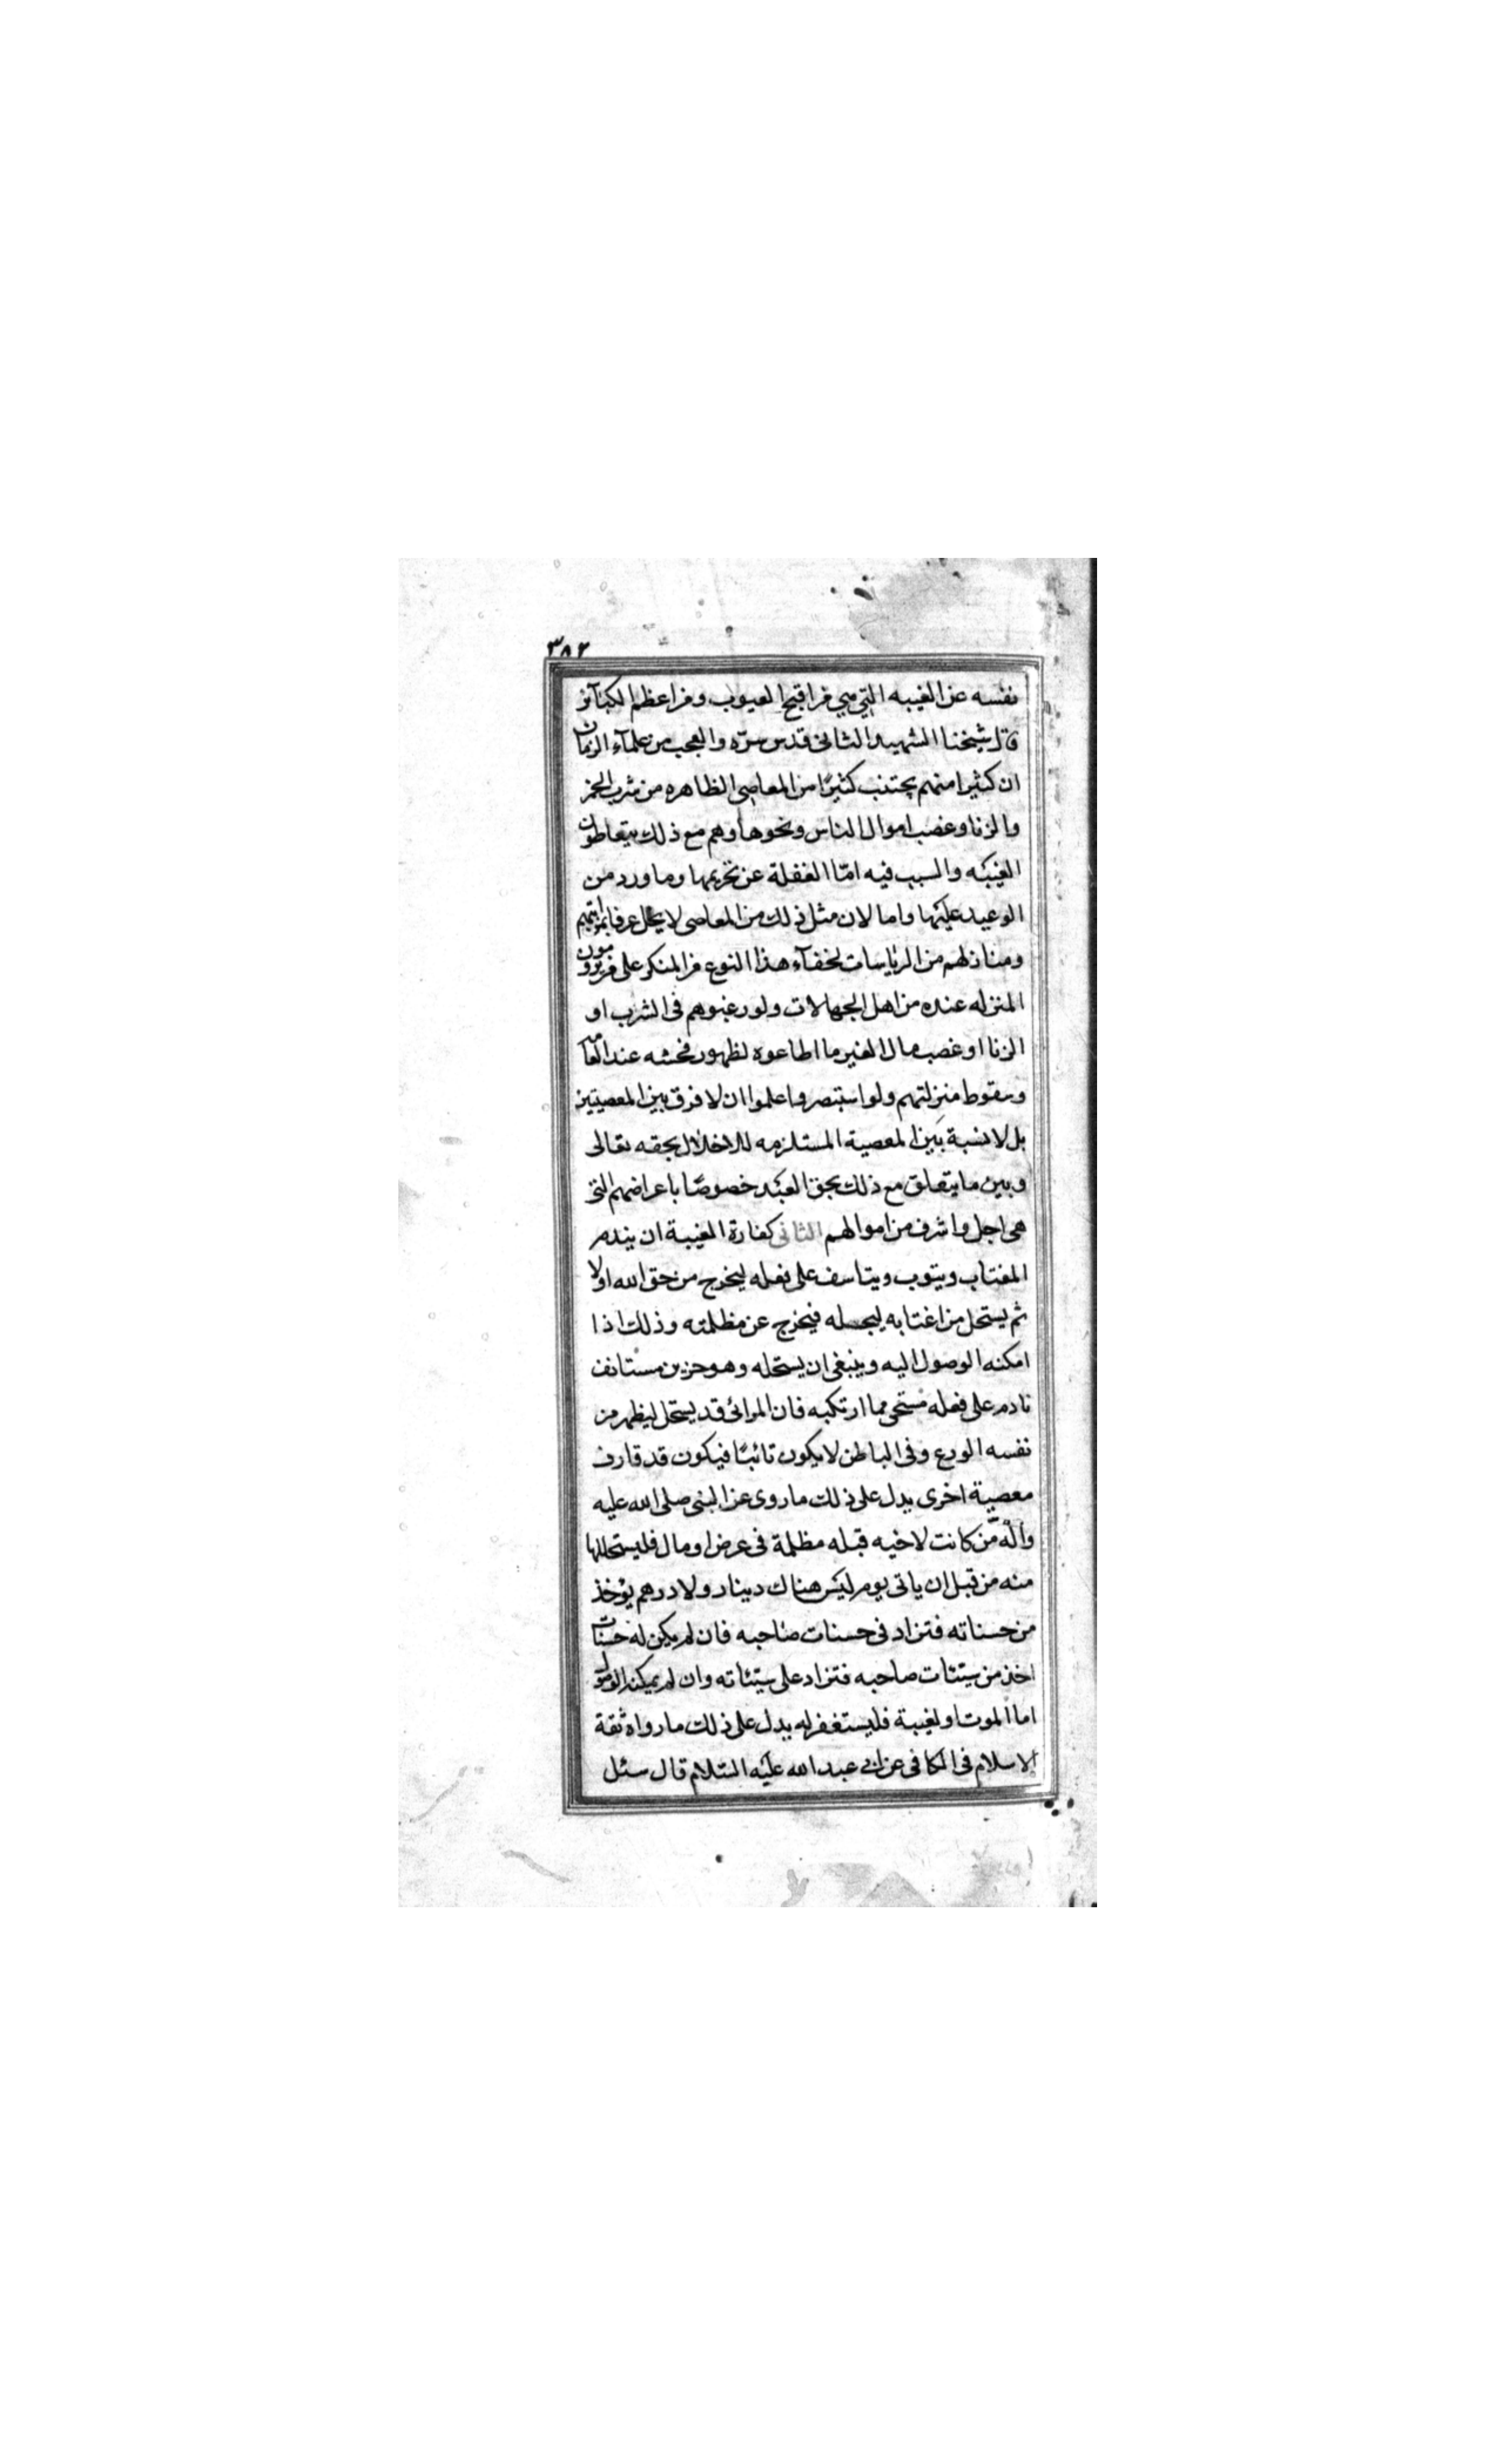 ٣٨٢
نفسه عن الغيبه التي هي من اقبح العيوب ومن اعظم الكبآئر
قال شيخنا الشهيد الثاني قدس سرّه والعجب من علمآء الزمان
ان كثيرا منهم يجتنب كثيرًا من المعاصي الظاهره من شرب الخمر
والزنا وغصب اموال الناس ونحوها وهم مع ذلك يتعاطون
الغيبَه والسبب فيه امّا الغفلة عن تحريمها وما ورد من
الوعيد عليَها واما لان مثل ذلك من المعاصي لا يخل عرفا بمراتبهم
ومنازلهم من الرئاسات لخفآء هذا النوع من المنكر على من يرومون
المنزله عنده من اهل الجهالات ولو رغبوهم في الشرب او
الزنا او غصب مال الغير ما اطاعوه لظهور فحشه عند العامه
وسقوط منزلتهم ولو استبصروا علموا ان لا فرق بين المعصيتين
بل لا نسبة بَين المعصية المستلزمه للاخلال بحقه تعالى
وبين ما يتعلق مع ذلك بحق العبَد خصوصًا باعراضهم التي
هي اجل واشرف من اموالهم الثاني كفارة الغيبة ان يندم
المغتاب ويتوب ويتاسف على فعله ليخرج من حق الله اولا
ثم يستحل من اغتابه ليجعله فيخرج عن مظلمته وذلك اذا
امكنه الوصول اليه وينبغي ان يستحله وهو حزين مستانف
نادم على فعله مستحي مما ارتكبه فان المرائي قد يستحل ليظهر من
نفسه الورع وفي الباطن لا يكون تائبًا فيكون قد قارف
معصية اخرى يدل على ذلك ما روى عن النبي صلى الله عليه
وآله من كانت لاخيه قبله مظلمة في عرض او مال فليستحللها
منه من قبل ان ياتي يوم ليس هناك دينار ولا درهم يؤخذ
من حسناته فتزاد في حسنات صاحبه فان لم يكن له حسنات
اخذ من سيّئات صاحبه فتزاد على سيّئاته وان لم يمكنه الوصول
اما الموت او لغيبة فليستغفر له يدل على ذلك ما رواه ثقة
الاسلام في الكافي عن ابي عبد الله عليَه السّلام قال سئل